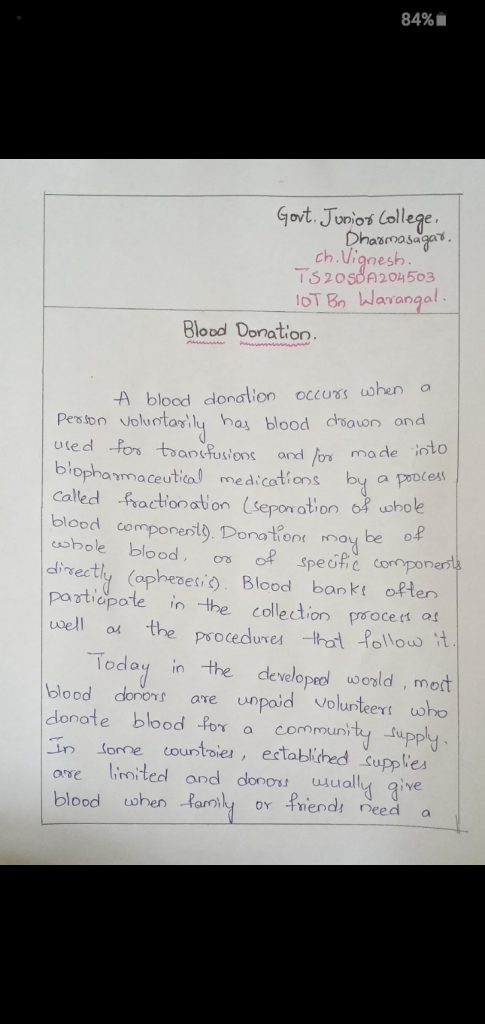 84%
Govt. Junior College,
Dharmasagar.
ch. Vignesh.
TS20SDA204503
10T Bn Warangal.
Blood Donation.
A blood donation occurs when a
Person voluntarily has blood drawn and
used for transfusions and /or made into
biopharmaceutical medications by a process
called fractionation (separation of whole
blood components). Donations may be of
whole blood, or of specific components
directly (apheresis). Blood banks often
participate in the collection process as
well as the procedures that follow it.
Today in the developed world, most
blood donors are unpaid volunteers who
donate blood for a community supply.
In some countries, established supplies
are limited and donors usually give
blood when family or friends need a